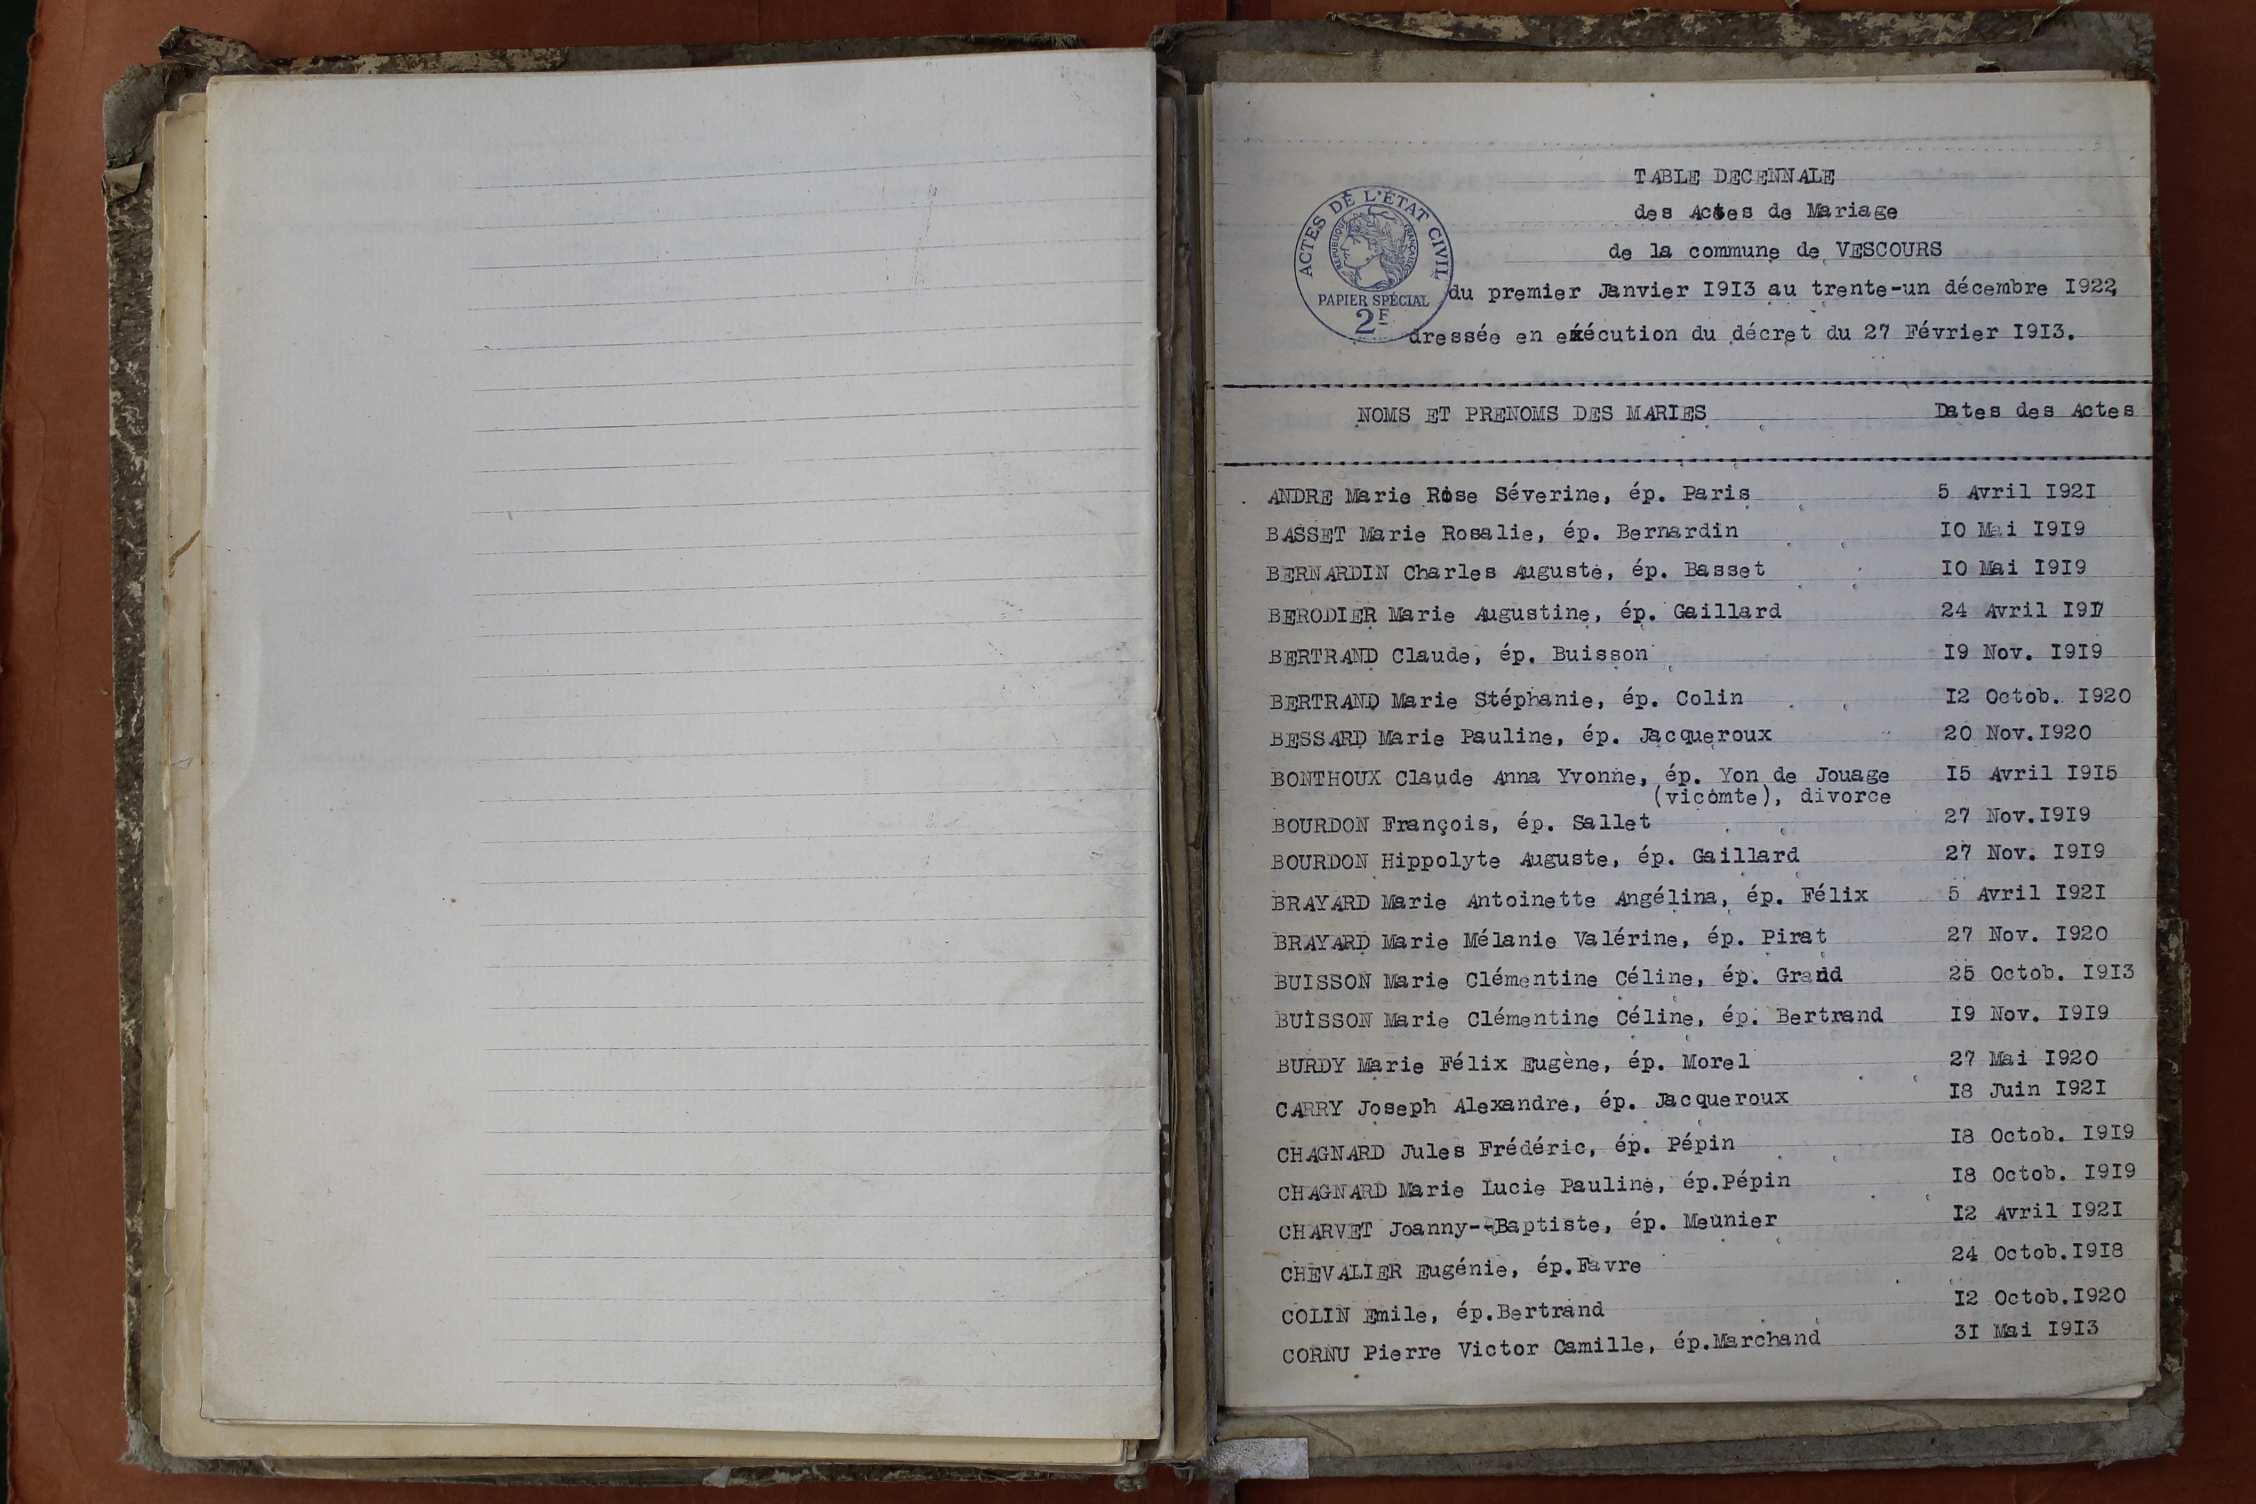 TABLE DECENNALE
des Actes de Mariage
de la commune de VESCOURS
ACTES DE L'ÉTAT CIVIL
REPUBLIQUE FRANÇAISE
PAPIER SPÉCIAL
2F
du premier Janvier I9I3 au trente-un décembre I922,
dressée en exécution du décret du 27 Février I9I3.
NOMS ET PRENOMS DES MARIES Dates des Actes
ANDRE Marie Rose Séverine, ép. Paris 5 Avril I92I
BASSET Marie Rosalie, ép. Bernardin IO Mai I9I9
BERNARDIN Charles Auguste, ép. Basset IO Mai I9I9
BERODIER Marie Augustine, ép. Gaillard 24 Avril I9I7
BERTRAND Claude, ép. Buisson I9 Nov. I9I9
BERTRAND Marie Stéphanie, ép. Colin I2 Octob. I920
BESSARD Marie Pauline, ép. Jacqueroux 20 Nov.I920
BONTHOUX Claude Anna Yvonne, ép. Yon de Jouage I5 Avril I9I5
(vicomte), divorce
BOURDON François, ép. Sallet 27 Nov.I9I9
BOURDON Hippolyte Auguste, ép. Gaillard 27 Nov. I9I9
BRAYARD Marie Antoinette Angélina, ép. Félix 5 Avril I92I
BRAYARD Marie Mélanie Valérine, ép. Pirat 27 Nov. I920
BUISSON Marie Clémentine Céline, ép. Grand 25 Octob. I9I3
BUISSON Marie Clémentine Céline, ép. Bertrand I9 Nov. I9I9
BURDY Marie Félix Eugène, ép. Morel 27 Mai I920
CARRY Joseph Alexandre, ép. Jacqueroux I8 Juin I92I
CHAGNARD Jules Frédéric, ép. Pépin I8 Octob. I9I9
CHAGNARD Marie Lucie Pauline, ép.Pépin I8 Octob. I9I9
CHARVET Joanny--Baptiste, ép. Meunier I2 Avril I92I
CHEVALIER Eugénie, ép.Favre 24 Octob.I9I8
COLIN Emile, ép.Bertrand I2 Octob.I920
CORNU Pierre Victor Camille, ép.Marchand 3I Mai I9I3